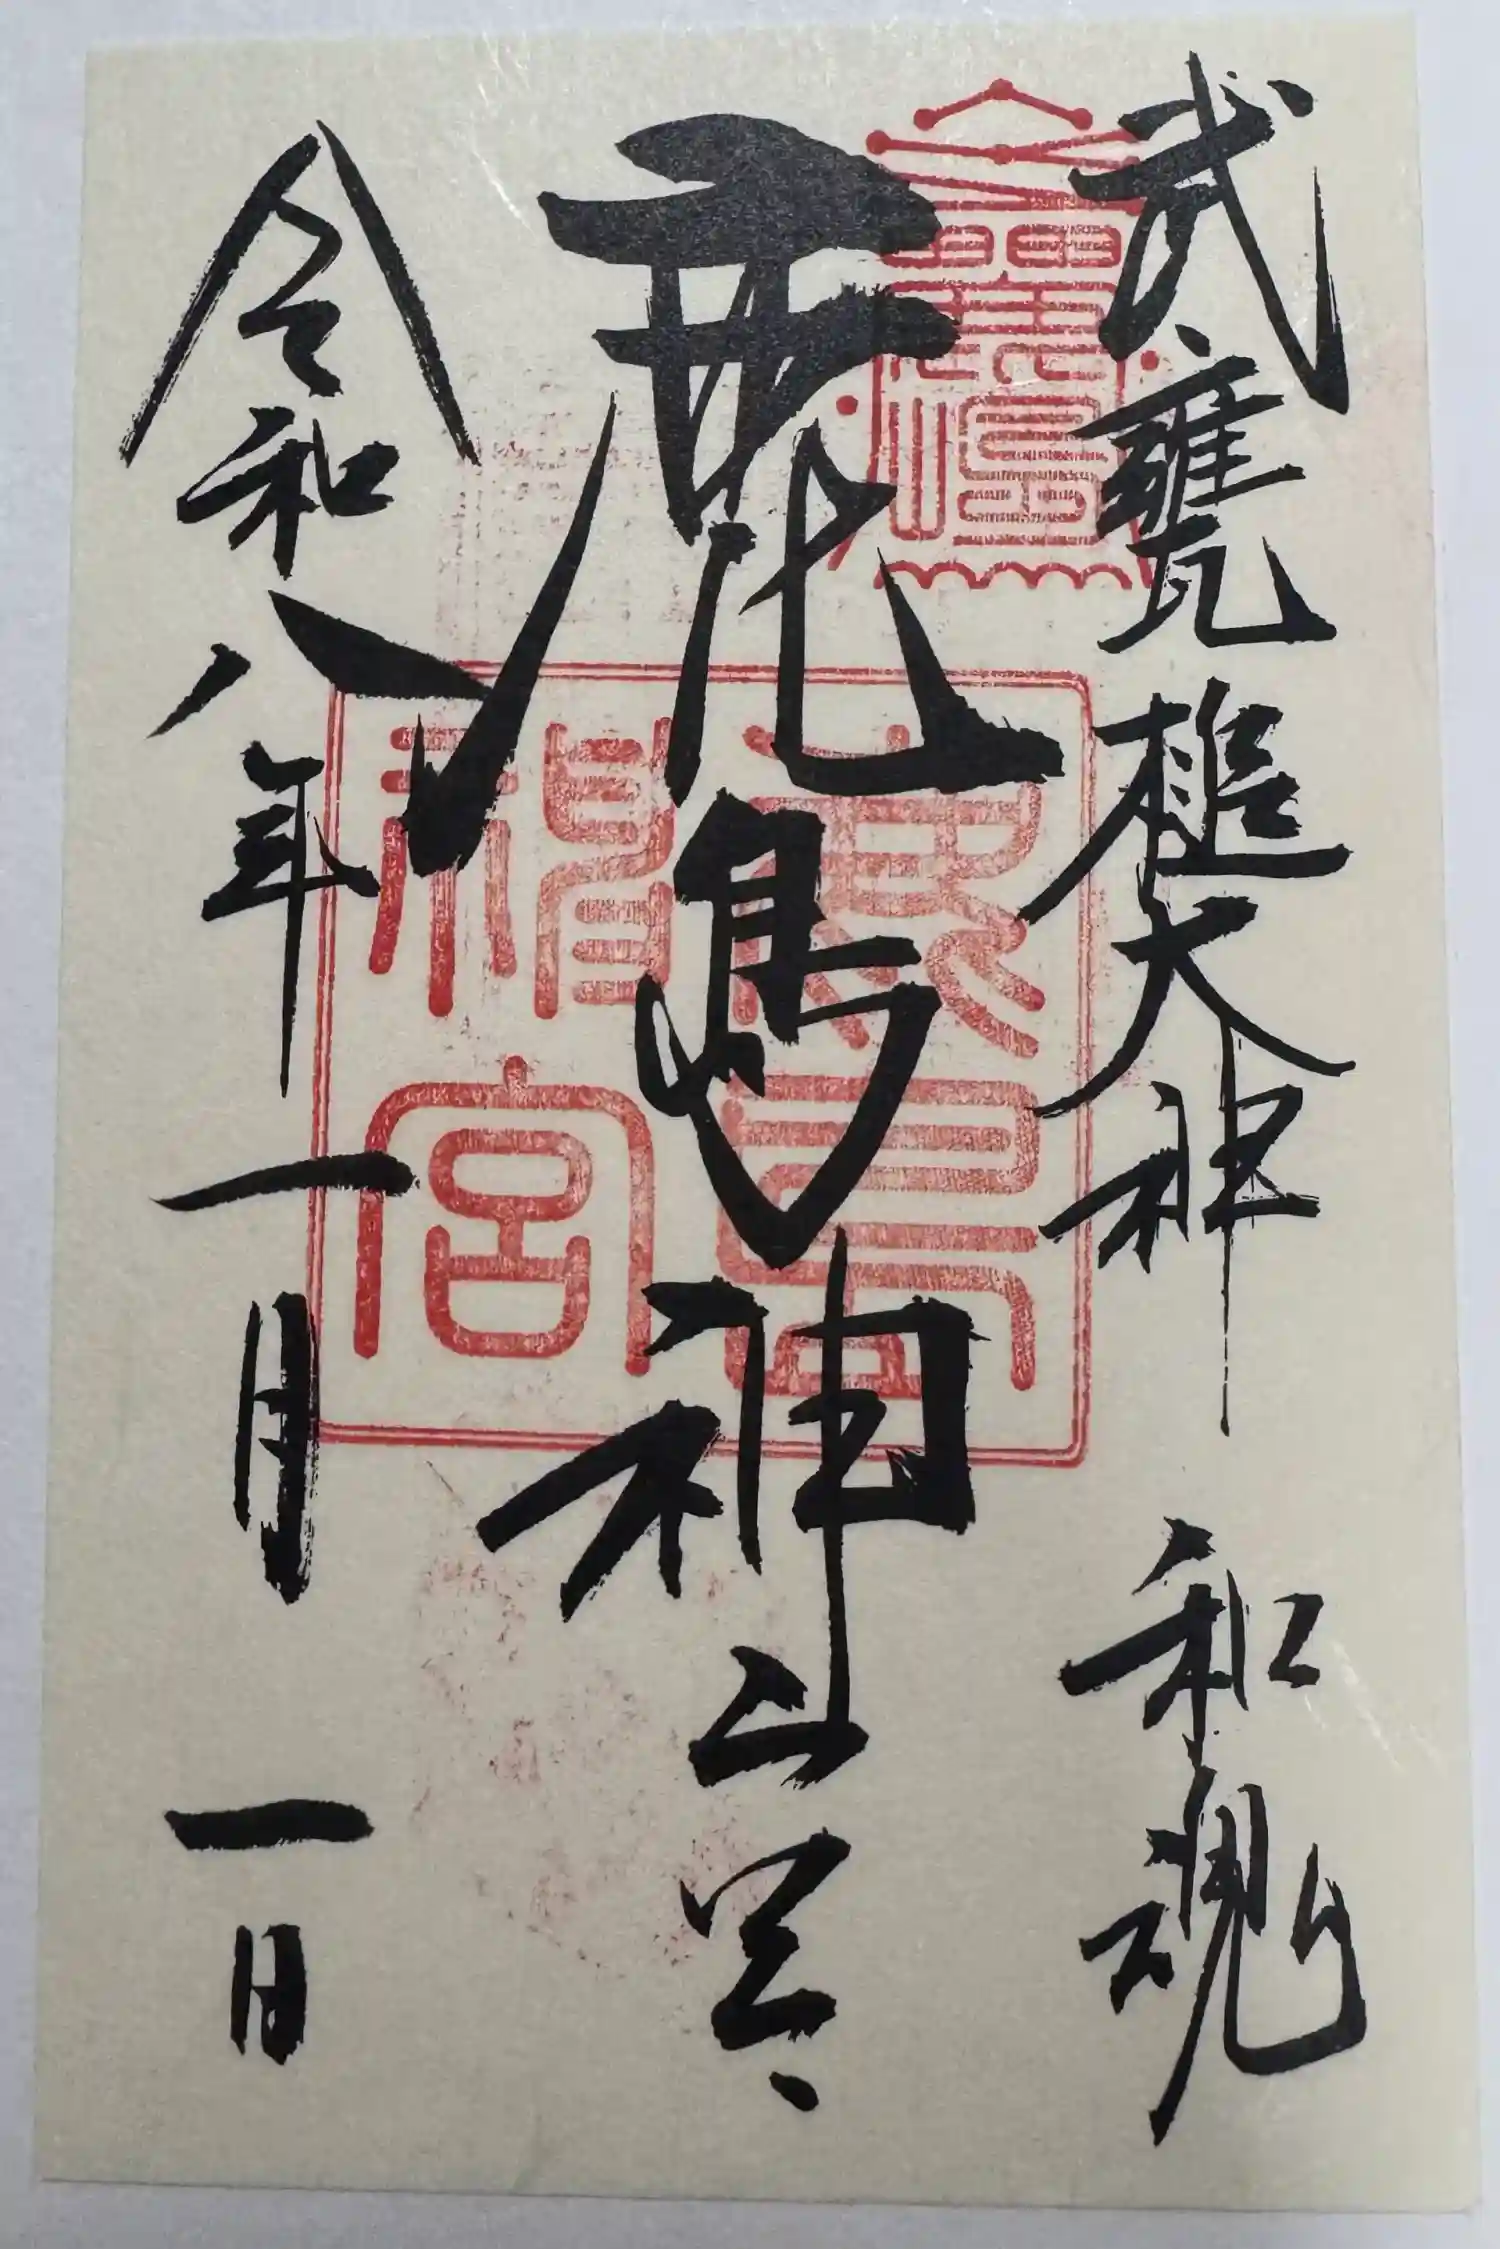 武甕槌大神 和魂
鹿島神宮
令和八年一月一日